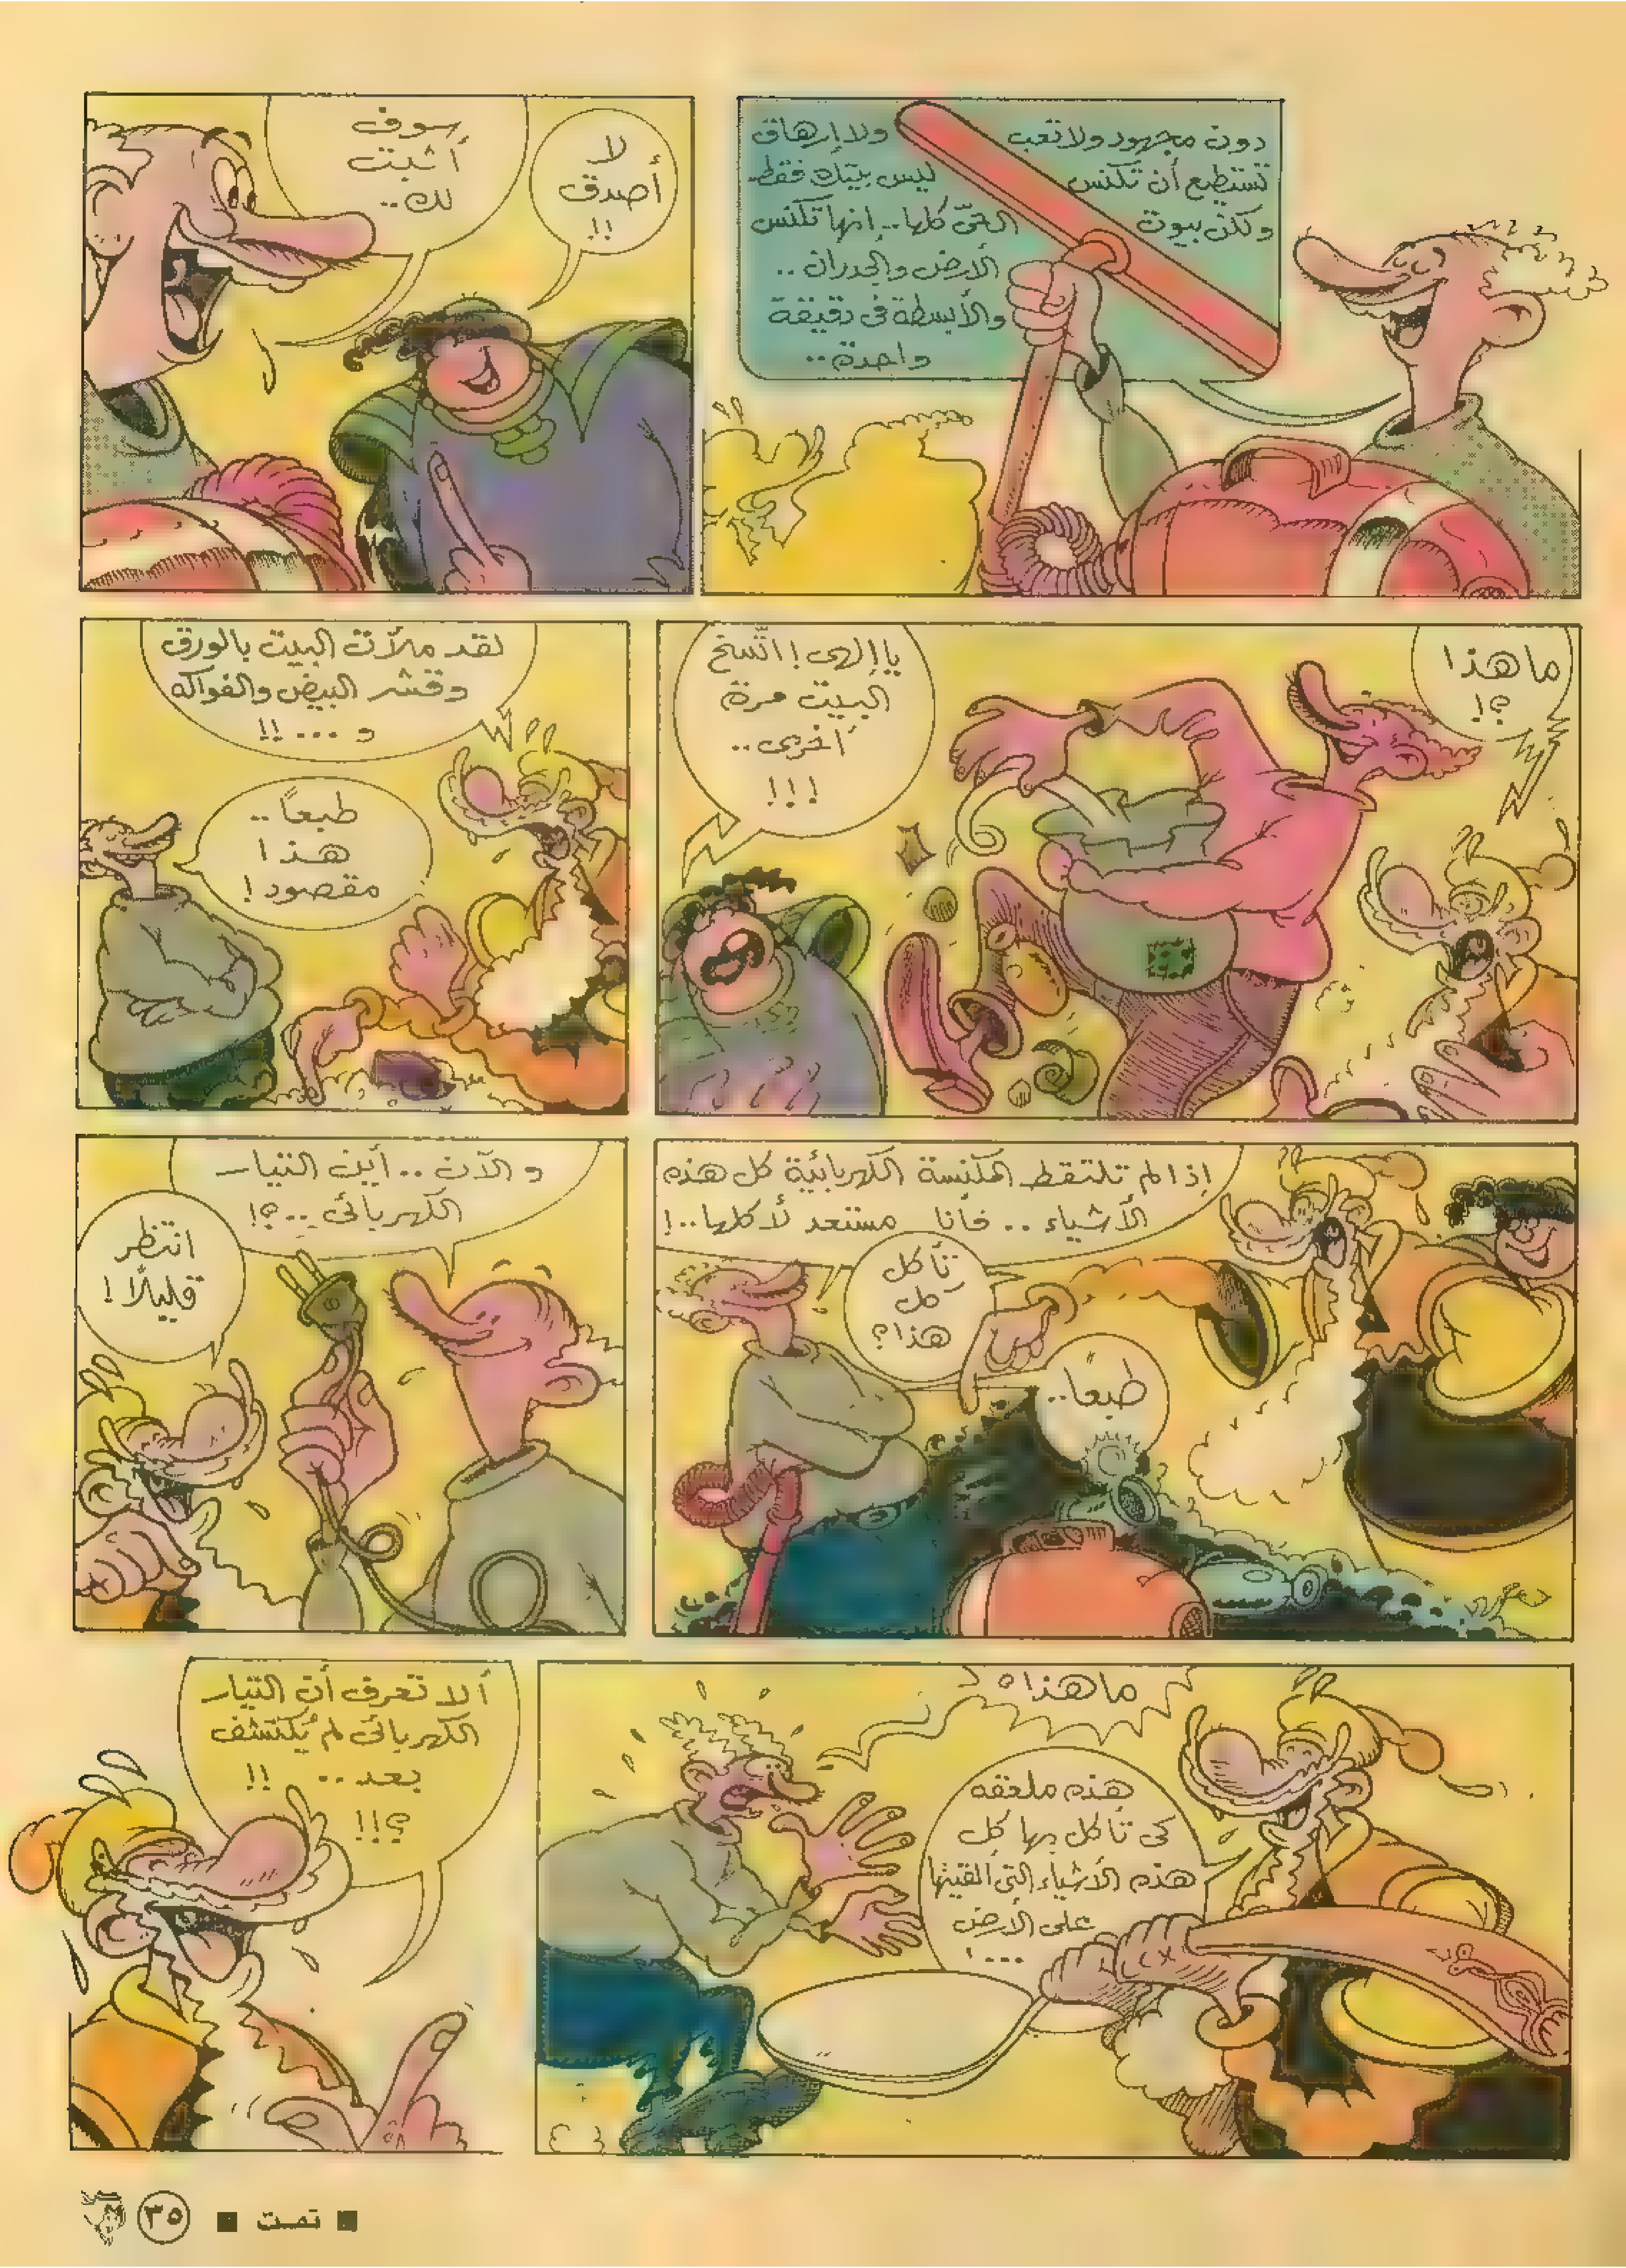 دون مجهود ولا تعب ولا إرهاق
تستطيع أن تكنس ليس بيتك فقط
ولكن بيوت الحىّ كلها.. إنها تكنس
الأرض والجدران ..
والأبسطة فى دقيقة
واحدة..
لا
أصدق
!!
سوف
أثبت
لك..
ما هذا
؟!
يا إلهى! اتّسخ
البيت مرة
أخرى..
!!!
لقد ملأت البيت بالورق
وقشر البيض والفواكه
و ...!!
طبعاً..
هذا
مقصود!
إذا لم تلتقط المكنسة الكهربائية كل هذه
الأشياء .. فأنا مستعد لأكلها..!
تأكل
كل
هذا؟
طبعاً..
والآن .. أين التيار
الكهربائى ..؟!
انتظر
قليلاً!
ما هذا؟
هذه ملعقه
كى تأكل بها كل
هذه الأشياء التى ألقيتها
على الأرض
...!
ألا تعرف أن التيار
الكهربائى لم يُكتشف
بعد .. !!
؟!!
■ تمت ■ ٣٥